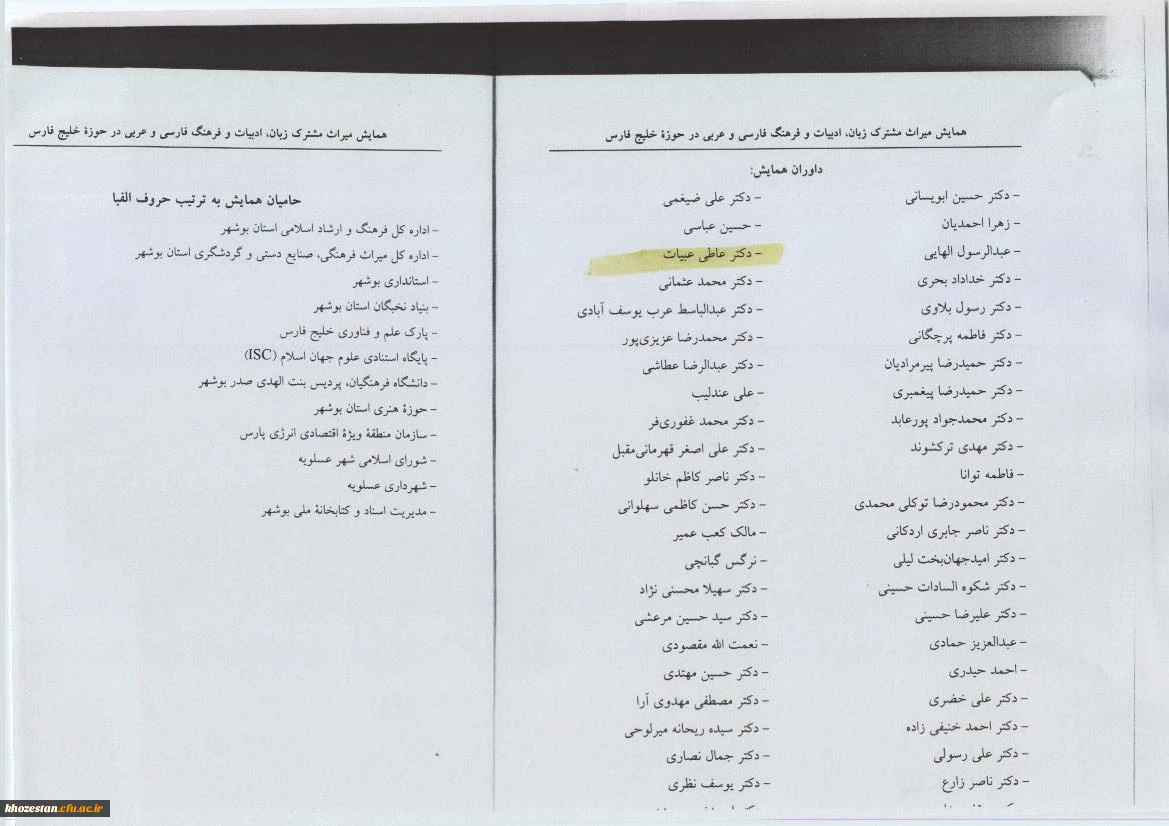 همایش میراث مشترک زبان، ادبیات و فرهنگ فارسی و عربی در حوزهٔ خلیج فارس
داوران همایش:
- دکتر حسین ابویسانی
- زهرا احمدیان
- عبدالرسول الهایی
- دکتر خداداد بحری
- دکتر رسول بلاوی
- دکتر فاطمه پرچگانی
- دکتر حمیدرضا پیرمرادیان
- دکتر حمیدرضا پیغمبری
- دکتر محمدجواد پورعابد
- دکتر مهدی ترکشوند
- فاطمه توانا
- دکتر محمودرضا توکلی محمدی
- دکتر ناصر جابری اردکانی
- دکتر امیدجهان‌بخت لیلی
- دکتر شکوه السادات حسینی
- دکتر علیرضا حسینی
- عبدالعزیز حمادی
- احمد حیدری
- دکتر علی خضری
- دکتر احمد خنیفی زاده
- دکتر علی رسولی
- دکتر ناصر زارع
- دکتر علی ضیغمی
- حسین عباسی
- دکتر عاطی عبیات
- دکتر محمد عثمانی
- دکتر عبدالباسط عرب یوسف آبادی
- دکتر محمدرضا عزیزی‌پور
- دکتر عبدالرضا عطاشی
- علی عندلیب
- دکتر محمد غفوری‌فر
- دکتر علی اصغر قهرمانی‌مقبل
- دکتر ناصر کاظم خانلو
- دکتر حسن کاظمی سهلوانی
- مالک کعب عمیر
- نرگس گبانچی
- دکتر سهیلا محسنی نژاد
- دکتر سید حسین مرعشی
- نعمت الله مقصودی
- دکتر حسین مهتدی
- دکتر مصطفی مهدوی آرا
- دکتر سیده ریحانه میرلوحی
- دکتر جمال نصاری
- دکتر یوسف نظری
همایش میراث مشترک زبان، ادبیات و فرهنگ فارسی و عربی در حوزهٔ خلیج فارس
حامیان همایش به ترتیب حروف الفبا
- اداره کل فرهنگ و ارشاد اسلامی استان بوشهر
- اداره کل میراث فرهنگی، صنایع دستی و گردشگری استان بوشهر
- استانداری بوشهر
- بنیاد نخبگان استان بوشهر
- پارک علم و فناوری خلیج فارس
- پایگاه استنادی علوم جهان اسلام (ISC)
- دانشگاه فرهنگیان، پردیس بنت الهدی صدر بوشهر
- حوزهٔ هنری استان بوشهر
- سازمان منطقهٔ ویژهٔ اقتصادی انرژی پارس
- شورای اسلامی شهر عسلویه
- شهرداری عسلویه
- مدیریت اسناد و کتابخانهٔ ملی بوشهر
khozestan.cfu.ac.ir